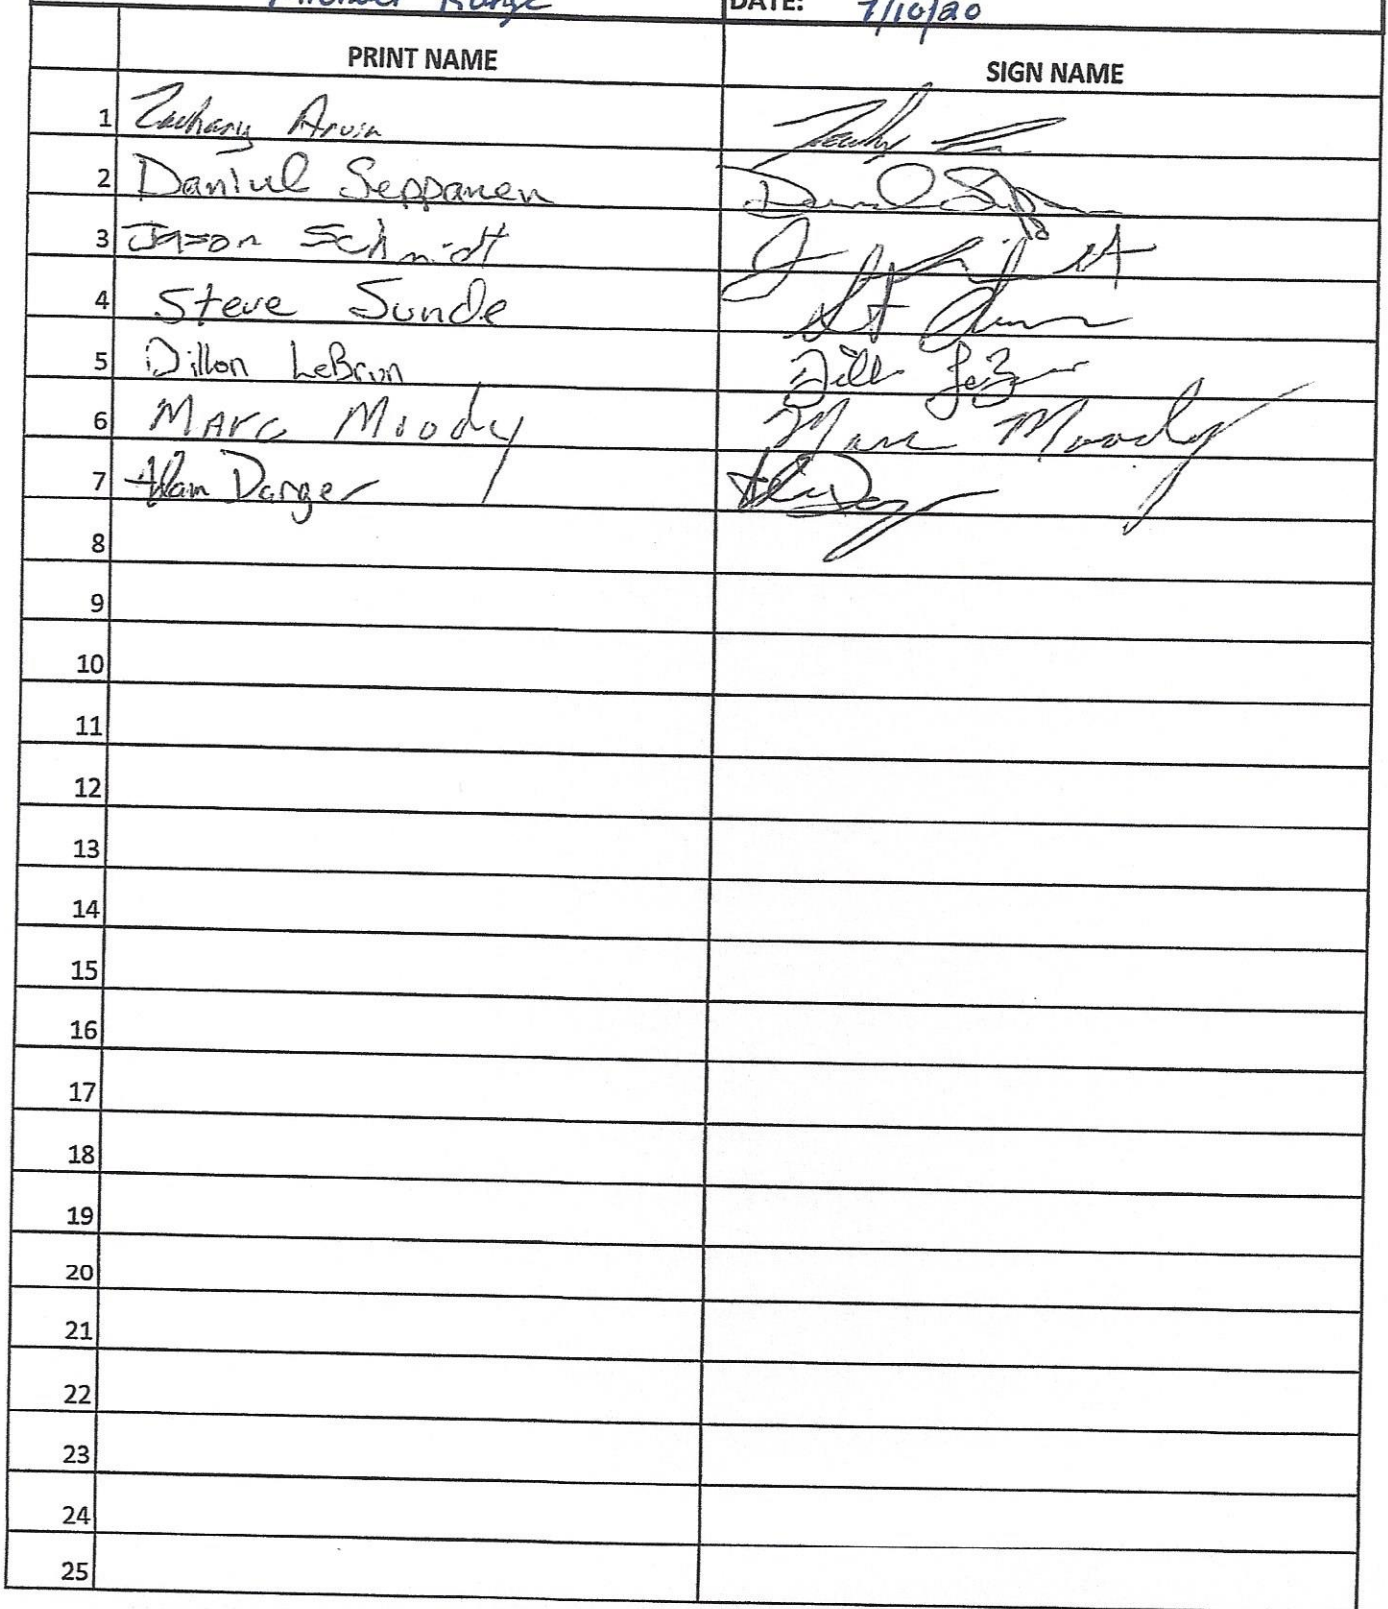 DATE: 7/10/20
PRINT NAME SIGN NAME
1 Zachary Arvin
2 Daniul Seppanen
3 Jason Schmidt
4 Steve Sunde
5 Dillon LeBrun
6 Marc Moody Marc Moody
7 Alan Darger
8
9
10
11
12
13
14
15
16
17
18
19
20
21
22
23
24
25